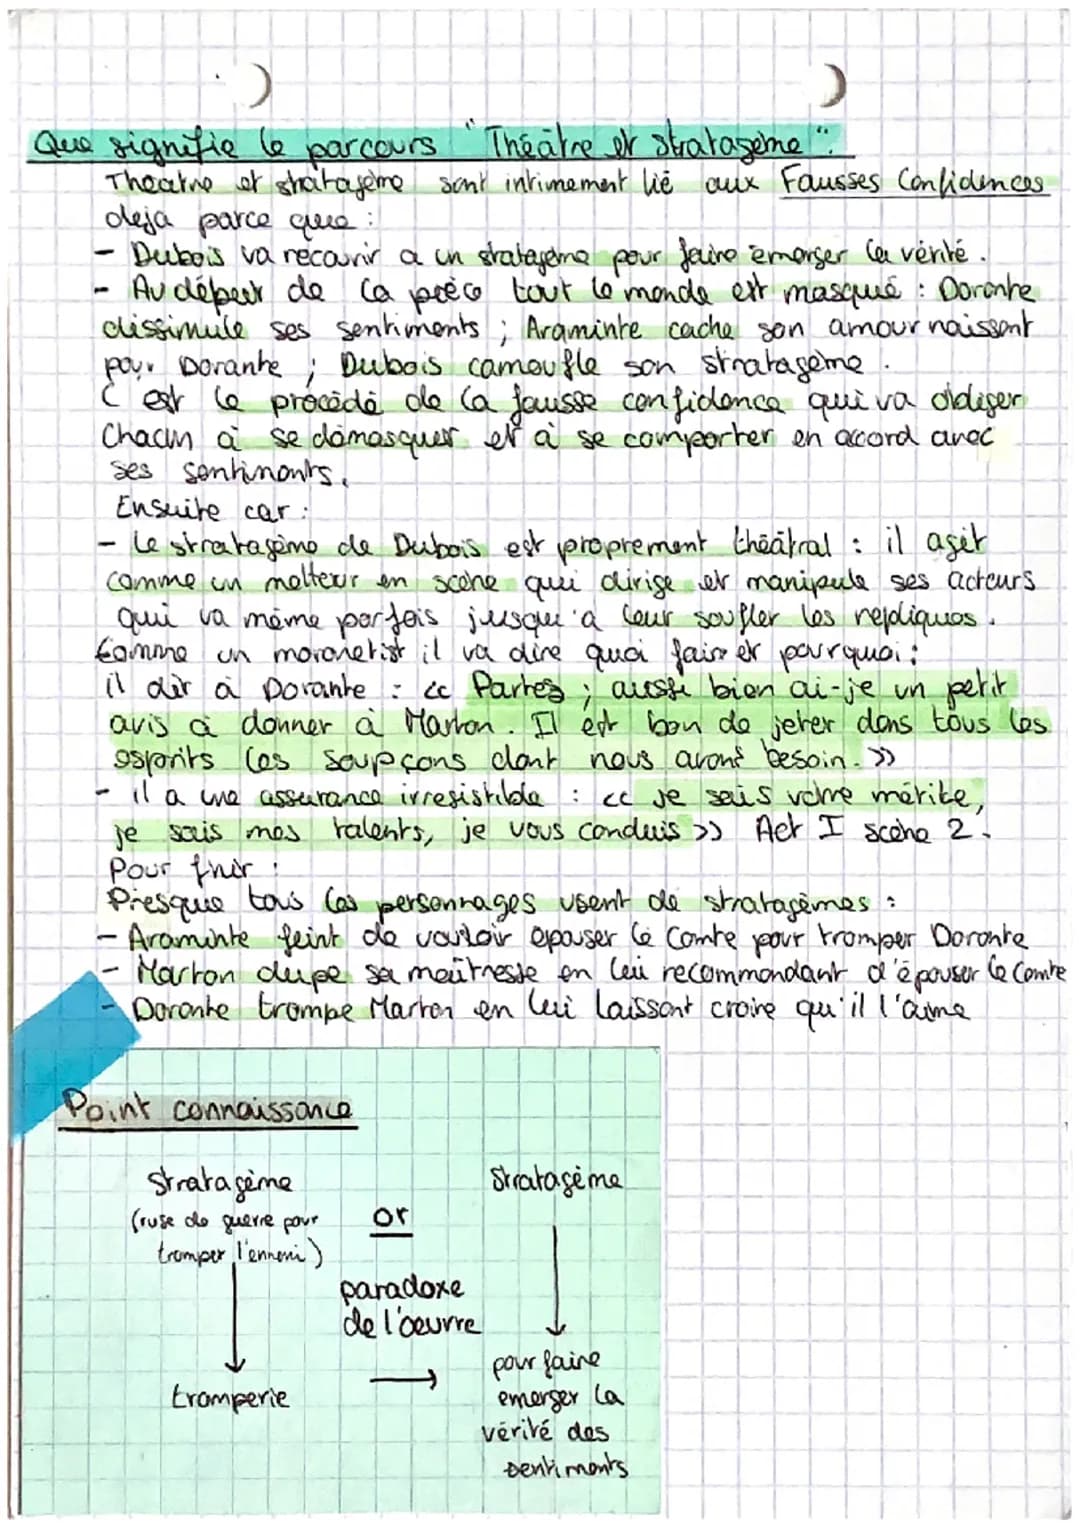 Que signifie le parcours "Théâtre et stratagème".
Theatre et stratagème sont intimement lié aux Fausses Confidences
deja parce que :
- Dubois va recourir a un stratagème pour faire émerger la vérité.
- Au départ de la pièce tout le monde est masqué : Dorante
dissimule ses sentiments ; Araminte cache son amour naissant
pour Dorante ; Dubois camoufle son stratagème.
C'est le procédé de la fausse confidence qui va obliger
Chacun à se démasquer et à se comporter en accord avec
ses sentiments.
Ensuite car :
- Le stratagème de Dubois est proprement théâtral : il agit
comme un metteur en scène qui dirige et manipule ses acteurs
qui va même parfois jusqu'a leur soufler les repliques.
Comme un marionetist il va dire quoi faire et pourquoi :
il dit à Dorante : << Partez ; aussi bien ai-je un petit
avis à donner à Marton. Il est bon de jeter dans tous les
esprits les soupçons dont nous avons besoin. >>
- il a une assurance irresistible : << je sais votre mérite,
je sais mes talents, je vous conduis >> Act I scène 2.
Pour finir :
Presque tous les personnages usent de stratagèmes :
- Araminte feint de vouloir épouser le Comte pour tromper Dorante
- Marton dupe sa maîtresse en lui recommandant d'épouser le Comte
- Dorante trompe Marton en lui laissant croire qu'il l'aime
Point connaissance
Stratagème
(ruse de guerre pour
tromper l'ennemi)
tromperie
or
paradoxe
de l'oeuvre
Stratagème
pour faire
emerger la
vérité des
sentiments